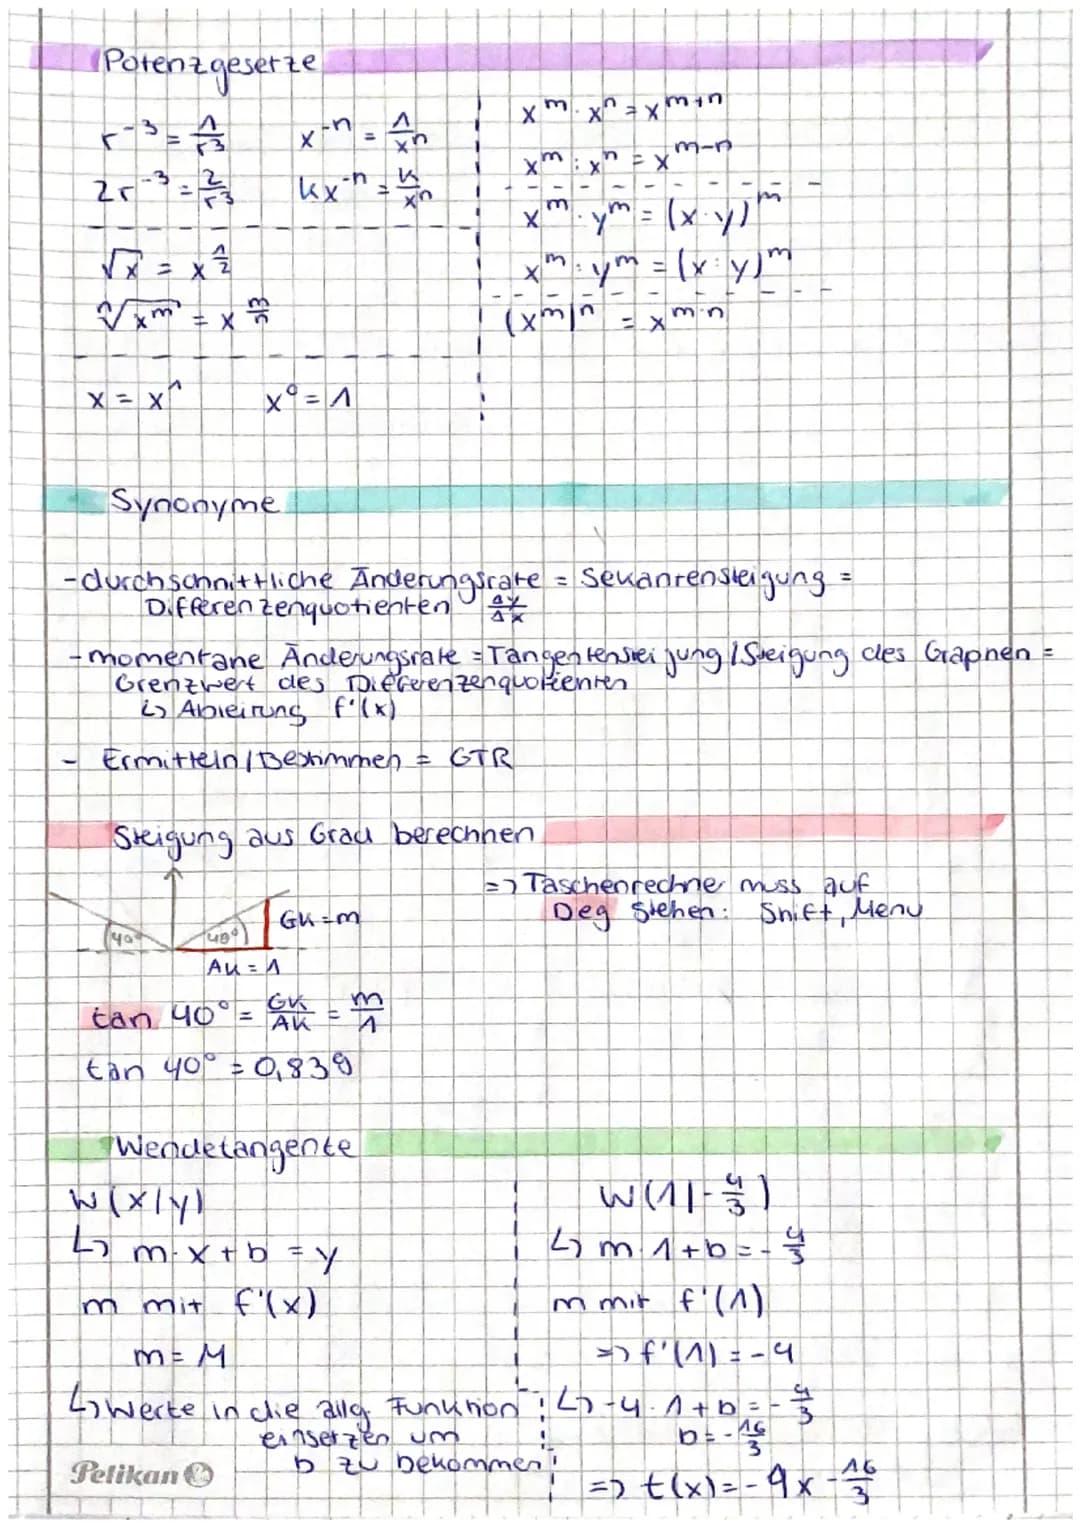 Potenzgesetze
r⁻³ = 1/r³    x⁻ⁿ = 1/xⁿ
2r⁻³ = 2/r³    kx⁻ⁿ = k/xⁿ
√x = x^(1/2)
ⁿ√(x^m) = x^(m/n)
x = x¹    x⁰ = 1
x^m · x^n = x^(m+n)
x^m : x^n = x^(m-n)
x^m · y^m = (x·y)^m
x^m : y^m = (x:y)^m
(x^m)^n = x^(m·n)
Synonyme
- durchschnittliche Änderungsrate = Sekantensteigung =
Differenzenquotienten Δy/Δx
- momentane Änderungsrate = Tangentensteigung / Steigung des Graphen =
Grenzwert des Differenzenquotienten
↳ Ableitung f'(x)
- Ermitteln / Bestimmen = GTR
Steigung aus Grad berechnen
=> Taschenrechner muss auf
Deg stehen: Shift, Menu
40°    40°    GK = m
AK = 1
tan 40° = GK/AK = m/1
tan 40° = 0,839
Wendetangente
W(x/y)
↳ m·x + b = y
m mit f'(x)
m = M
↳ Werte in die allg. Funktion
einsetzen um
b zu bekommen
W(1|-4/3)
↳ m·1 + b = -4/3
m mit f'(1)
=> f'(1) = -4
↳ -4·1 + b = -4/3
b = -16/3
=> t(x) = -4x - 16/3
Pelikan